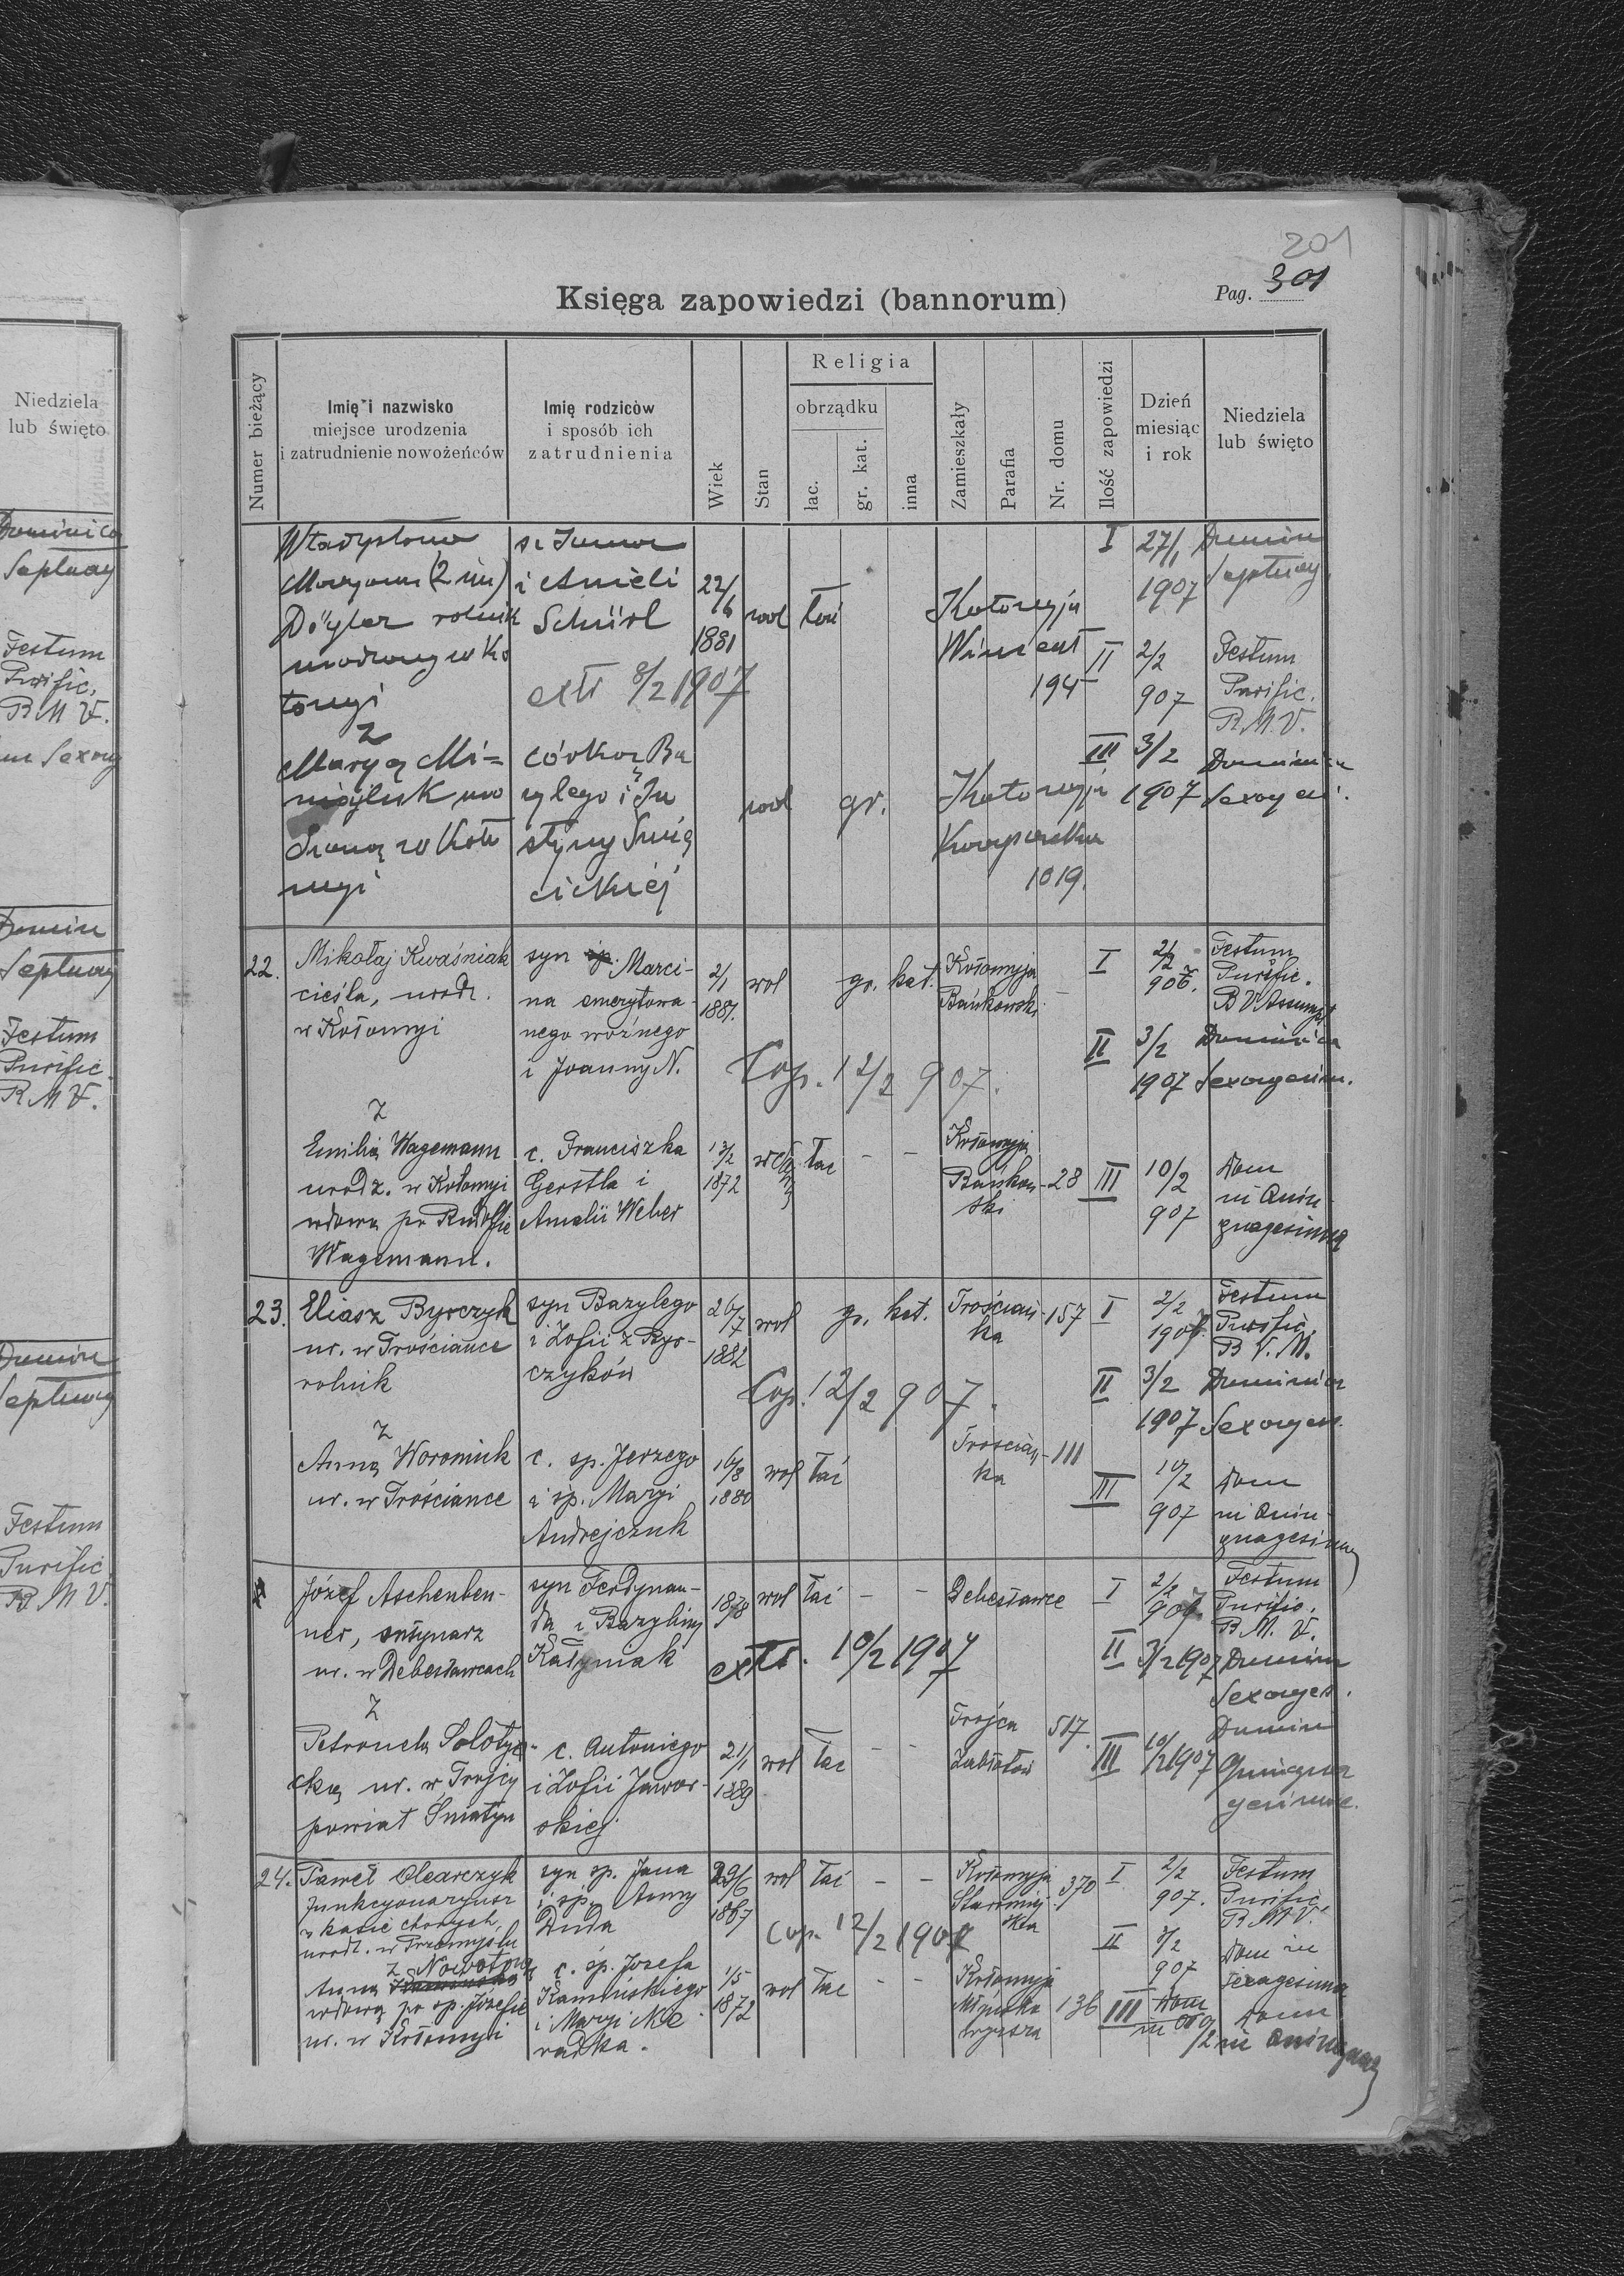 Niedziela
lub święto
Dominica
Septuag
Festum
Purific.
B M V.
Sexag
Domin
Septuag
Festum
Purific.
B M V.
Domin
Septuag
Festum
Purific
B M V.
201
Księga zapowiedzi (bannorum)
Pag. 301
Numer bieżący
Imię i nazwisko
miejsce urodzenia
i zatrudnienie nowożeńców
Imię rodziców
i sposób ich
zatrudnienia
Wiek
Stan
Religia
obrządku
łac.
gr. kat.
inna
Zamieszkały
Parafia
Nr. domu
Ilość zapowiedzi
Dzień
miesiąc
i rok
Niedziela
lub święto
Władysława
Maryana (2 im)
rolnik
urodzony w Ko
łomyi
z
Maryą Mi=
w Koło
myi
i Anieli
extr 8/2 1907
córką Ba
zylego i Ju
styny Świę
cickiej
22/6
1881
wol
łać
wol
gr.
Kołomyja
Wincent
194
Kołomyja
1019.
I 27/1 Domin
1907 Septuag
II 2/2 Festum
907 Purific.
B.M.V.
III 3/2 Dominica
1907 Sexages.
22.
Mikołaj Kwaśniak
cieśla, urodz.
w Kołomyi
syn Marci-
na emerytowa-
nego woźnego
i Joanny N.
2/1
1881.
wol
gr. kat.
Kołomyja
Bańkowski
I 2/2 Festum
Purific.
B V Assumpt
II 3/2 Dominica
1907 Sexagesim.
Cop. 12/2 907.
z
Emilią Wagemann
urodz. w Kołomyi
wdową po Rudolfie
Wagemann.
c. Franciszka
Gerstla i
Amalii Weber
13/2
1872
łac - -
Kołomyja
Bańkow
ski
28 III 10/2
907
Dom
in Quin-
quagesima
23.
Eliasz Byrczyk
ur. w Trościance
rolnik
syn Bazylego
i Zofii z Byr-
czyków
26/7
1882
wol
gr. kat.
Trościań-
ka
157 I 2/2
1907.
Festum
Purific.
B V. M.
II 3/2 Dominica
1907 Sexages.
Cop. 12/2 907.
z
Anną Woroniuk
ur. w Trościance
c. śp. Jerzego
i śp. Maryi
Andrejczuk
16/8
1880
wol łać
Trościań-
ka
111
III 10/2
907
Dom
in Quin-
quagesima
Józef Aschenben-
ner,
ur. w Debesławcach
syn Ferdynan-
da i Bazyliny
1878
wol łać - -
Debesławce
I 2/2
907
Festum
Purific.
B M. V.
extr. 10/2 1907
II 3/2 1907 Domin
Sexages.
z
Petronelą Sołoty-
cką ur. w Trojcy
powiat Śniatyn
c. Antoniego
i Zofii Jawor-
skiej
21/1
1889
wol łac - -
Trojca
Zabłotów
517.
III 10/2 1907
Domin
Quinqua
gesimae.
24.
Paweł Olearczyk
funkcyonaryusz
w kasie chorych,
urodz. w Przemyślu
syn śp. Jana
i śp. Anny
Duda
29/6
1867
wol łać - -
Kołomyja
370
I 2/2
907.
Festum
Purific
B M V.
Cop. 12/2 1907
II 3/2
907
Dom in
Sexagesima
z
Anną
wdową po śp. Józefie
ur. w Kołomyi
c. śp. Józefa
Kamińskiego
i Maryi Ne
radka.
1/5
1872
wol łac - -
Kołomyja
136
III
Dom
in Quinquag